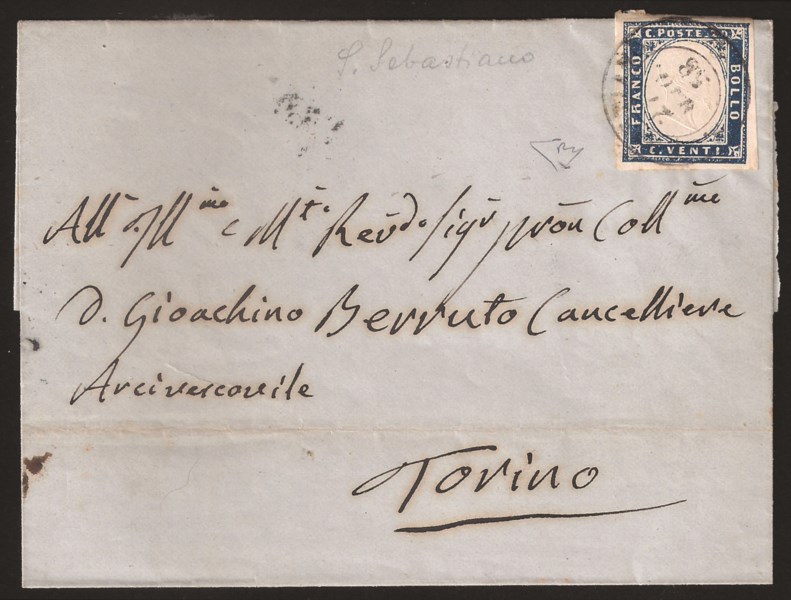 S. Sebastiano
C. POSTE. 20
FRANCO
BOLLO
C. VENTI.
All' Ill.mo e M.to Rev.do Sigr pron Coll.mo
D. Gioachino Berruto Cancelliere
Arcivescovile
Torino